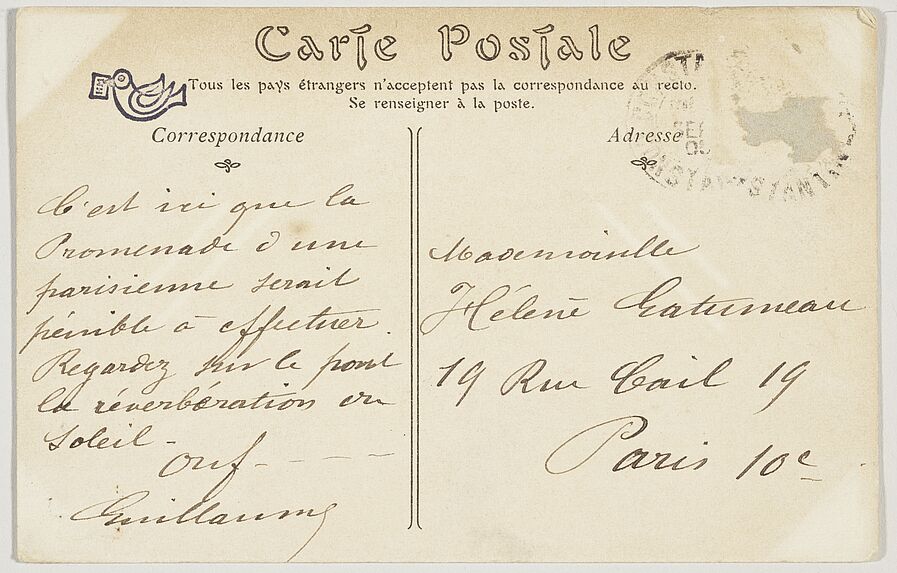 Carte Postale
Tous les pays étrangers n'acceptent pas la correspondance au recto.
Se renseigner à la poste.
Correspondance
C'est ici que la
Promenade d'une
parisienne serait
pénible à effectuer.
Regardez sur le pont
la réverbération du
soleil -
Ouf - - - -
Guillaume
Adresse
Mademoiselle
Hélène Gatumeau
19 Rue Cail 19
Paris 10e